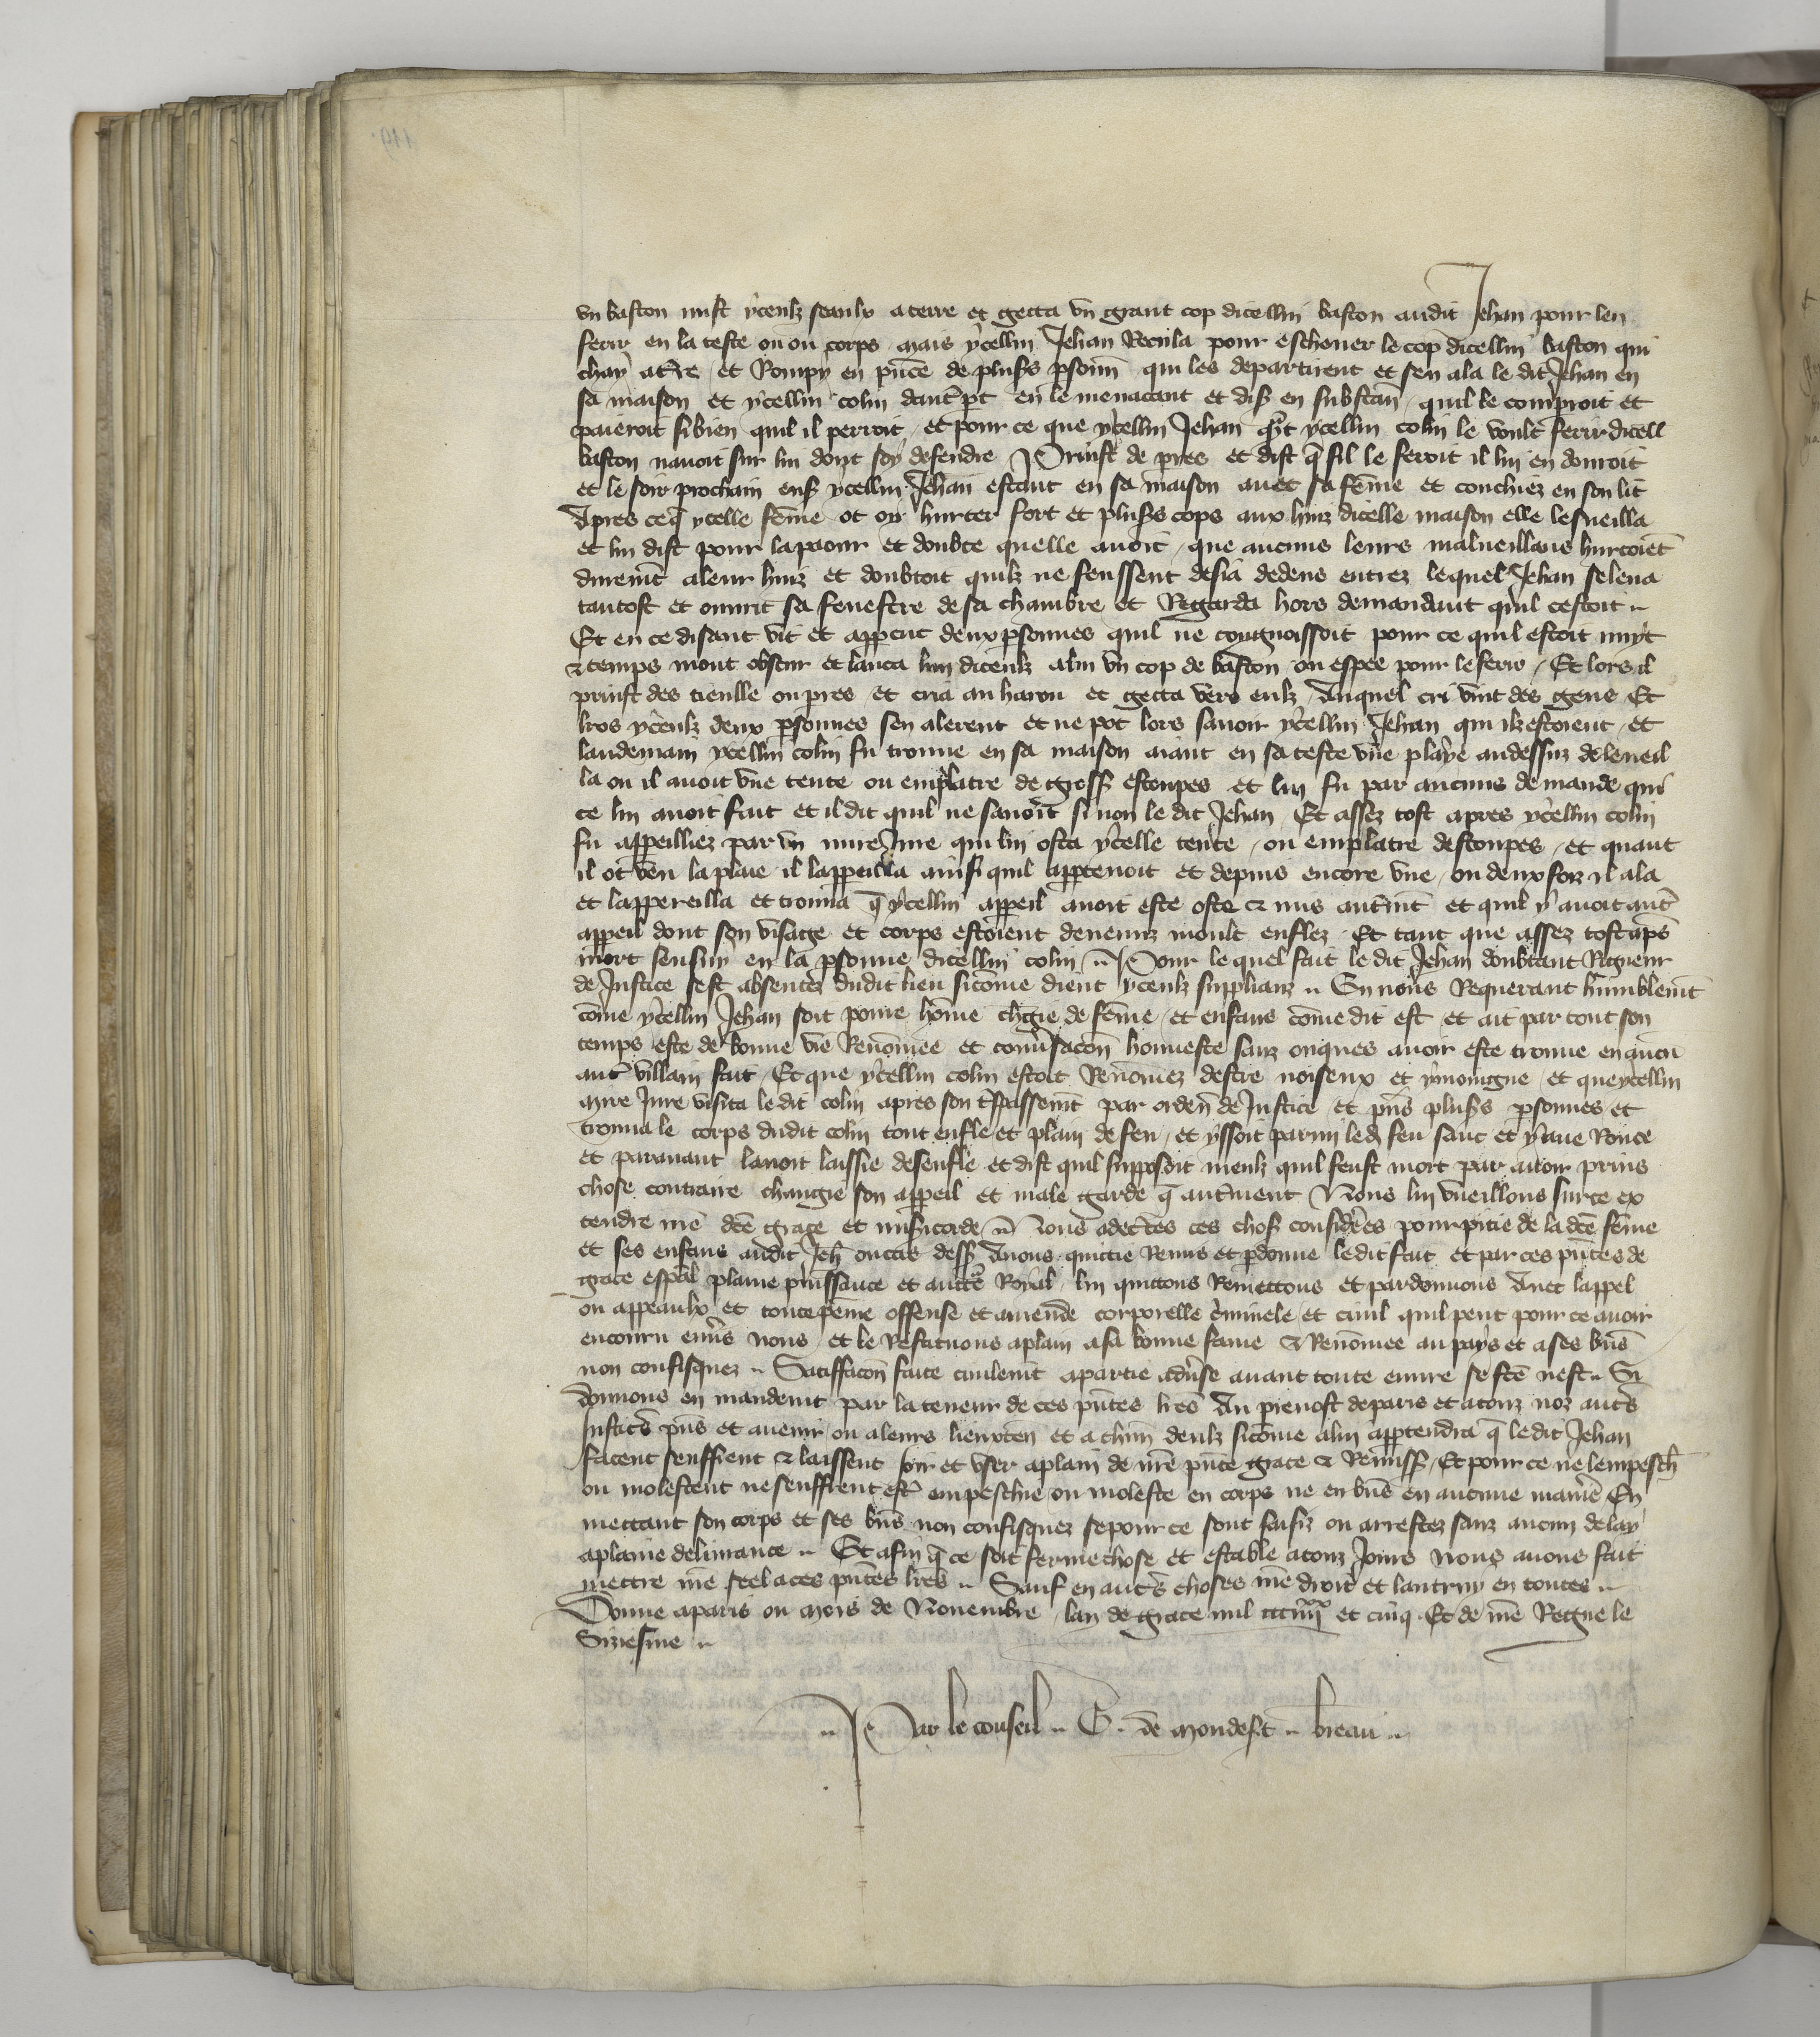 vn baston mist yceulx seaulx a terre et getta vn grant cop dicellui baston audit Jehan pour len
ferir en la teste ou ou corps mais ycellui Jehan Recula pour eschever le cop dicellui baston qui
chay a tre et Rompy en pñce de plusrs psoñn qui les departirent et sen ala le dit Jehan en
sa maison et ycellui colin dautre pt en le menacant et dist en substañ quil le comproit et
paieroit si bien quil il perroit et pour ce que ycellui Jehan qñt ycellui colin le voult ferir dicell
baston navoit sur lui dont soy defendre Prinst de pres et dist q̃ sil le feroit il lui en donroit
et le soir prochain ens ycellui Jehan estant en sa maison avec sa fẽme et couchiez en son lit
Apres ce q̃ ycelle fẽme ot oy hurter fort et plusrs cops aux huiz dicelle maison elle lesveilla
et lui dist pour la paour et doubte quelle avoit que aucuns leurs malveillans hurtoiẽt
duremẽt a leur huiz et doubtoit quilz ne feussent desia dedens entrez lequel Jehan se leva
tantost et ouvrit sa fenestre de sa chambre et Regarda hors demandant quil cestoit
Et en ce disant vit et apperçut deux psonnes quil ne congnoissoit pour ce quil estoit nuyt
& temps mout obscur et lanca lun diceulz a lui vn cop de baston ou espee pour le ferir Et lors il
prinst des tieulle ou pres et cria au harou et getta vers eulz Auquel cri vint des gens Et
lros yceulz deux psonnes sen alerent et ne pot lors savoir ycellui Jehan qui ilz estoient et
landemain ycellui colin fu trouve en sa maison aiant en sa teste vne playe au dessuz de leueil
la ou il avoit vne tente ou emplatre de gross estoupes et lui fu par aucuns demande qui
ce lui avoit fait et il dit quil ne savoit si non le dit Jehan Et assez tost apres ycellui colin
fu appeilliez par vn mire Jure qui lui osta ycelle tente ou emplatre destoupes et quant
il ot veu la plaie il lappeilla ainsi quil apptenoit et depuis encore vne ou deux foiz il ala
et lappereilla et trouva q̃ ycellui appeil avoit este oste & mis autremt et quil y avoit autre
appeil dont son visage et corps estoient devenuz moult enflez Et tant que assez tost apres
mort sensuy en la psonne dicellui colin Pour le quel fait le dit Jehan doubtant Rigueur
de Justice sest absentez dudit lieu sicõme dient yceulz supplianz En nous Requerant humblemẽt
cõme ycellui Jehan soit povre hõme chgie de fẽme et enfans cõme dit est et ait par tout son
temps este de bonne vie Renõmee et conversacõn honneste sanz onques avoir este trouve en aucũ
autre villain fait Et que ycellui colin estoit Renõmez destre noiseux et yvrongne et que ycellui
mire Jure visita le dit colin apres son trespassemt par ordeñ de Justice et pñs plusrs psonnes et
trouva le corps dudit colin tout enfle et plain de feu et yssoit parmi led feu sanc et yaue Rouce
et paravant lavoit laissie desenfle et dist quil supposoit mieulz quil feust mort par avoir prins
chose contraire changie son appeil et male garde q̃ autrement Nous lui vueillons sur ce ex
tendre nre dce grace et misicorde Nous adecertes ces chos consideres pour pitie de la dce fẽme
et ses enfans audit Jeh ou cas dess Avons quittie Remis et pdonne le dit fait et par ces pñtes de
grace espal plaine puissance et auctte Royal lui quittons Remettons et pardonnons Avec lappel
ou appeaulx et toute peine offense et amende corporelle criminele et civil quil peut pour ce avoir
encouru envers nous et le Restituons a plain a sa bonne fame & Renõmee au pays et a ses biens
non confisquez Satiffacõn faite civilemt a partie adverse avant toute euvre se fce nest Si
donnons en mandemt par la teneur de ces pñtes lres Au prevost de paris et a touz noz autrs
Justicrs pñs et avenir ou a leurs lieuxteñ et a chũn deulz sicõme a lui apptendra q̃ le dit Jehan
facent seuffrent & laissent joir et vser a plain de nre pñte grace & Remiss Et pour ce ne lempesch
ou molestent ne seuffrent estre empeschie ou moleste en corps ne en biens en aucune maniere En
mettant son corps et ses biens non confisquez se pour ce sont saisiz ou arrestez sanz aucun delay
a plaine delivrance Et afin q̃ ce soit ferme chose et estable a touz jours nous avons fait
mettre nre seel a ces pñtes lres Sauf en autrs choses nre droit et lautruy en toutes
Donne a paris ou mois de Novembre lan de grace mil ccc iiijxx et cinq Et de nre Regne le
Siziesme
Par le conseil G. de mondesit breau